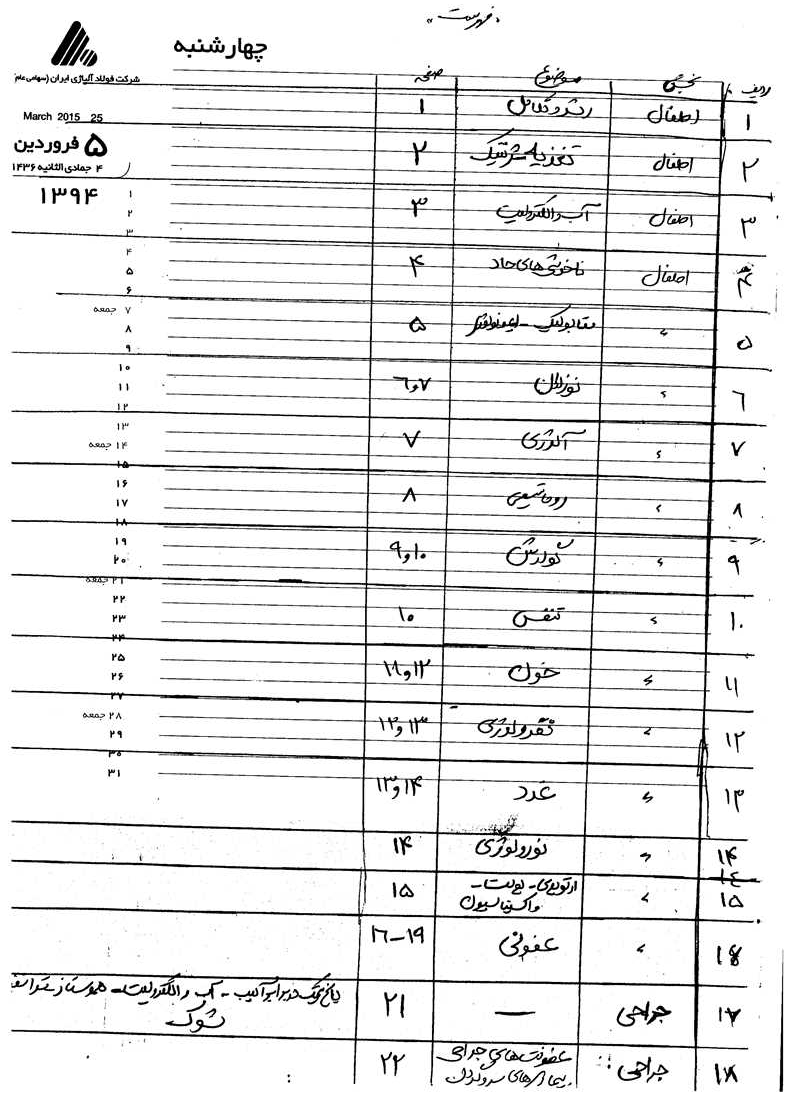 فهرست
چهارشنبه
شرکت فولاد آلیاژی ایران (سهامی عام)
March 2015 25
۵ فروردین
۴ جمادی الثانیه ۱۴۳۶
۱۳۹۴
۱
۲
۳
۴
۵
۶
۷ جمعه
۸
۹
۱۰
۱۱
۱۲
۱۳
۱۴ جمعه
۱۵
۱۶
۱۷
۱۸
۱۹
۲۰
۲۱ جمعه
۲۲
۲۳
۲۴
۲۵
۲۶
۲۷
۲۸ جمعه
۲۹
۳۰
۳۱
ردیف بخش موضوع صفحه
۱ اطفال رشد و تکامل ۱
۲ اطفال تغذیه ژنتیک ۲
۳ اطفال آب و الکترولیت ۳
۴ اطفال ناخوشی های حاد ۴
۵ " متابولیک - ایمونولوژی ۵
۶ " نوزادان ۶ و ۷
۷ " آلرژی ۷
۸ " روماتیسمی ۸
۹ " گوارش ۹ و ۱۰
۱۰ " تنفس ۱۰
۱۱ " خون ۱۱ و ۱۲
۱۲ " نفرولوژی ۱۲ و ۱۳
۱۳ " غدد ۱۳ و ۱۴
۱۴ " نورولوژی ۱۴
۱۵ " ارتوپدی - پوست - واکسیناسیون ۱۵
۱۶ " عفونی ۱۶-۱۹
۱۷ جراحی — ۲۱ پاسخ متابولیک در برابر آسیب - آب و الکترولیت - هموستاز
شوک
۱۸ جراحی عفونت های جراحی ۲۲
بیماریهای سر و گردن